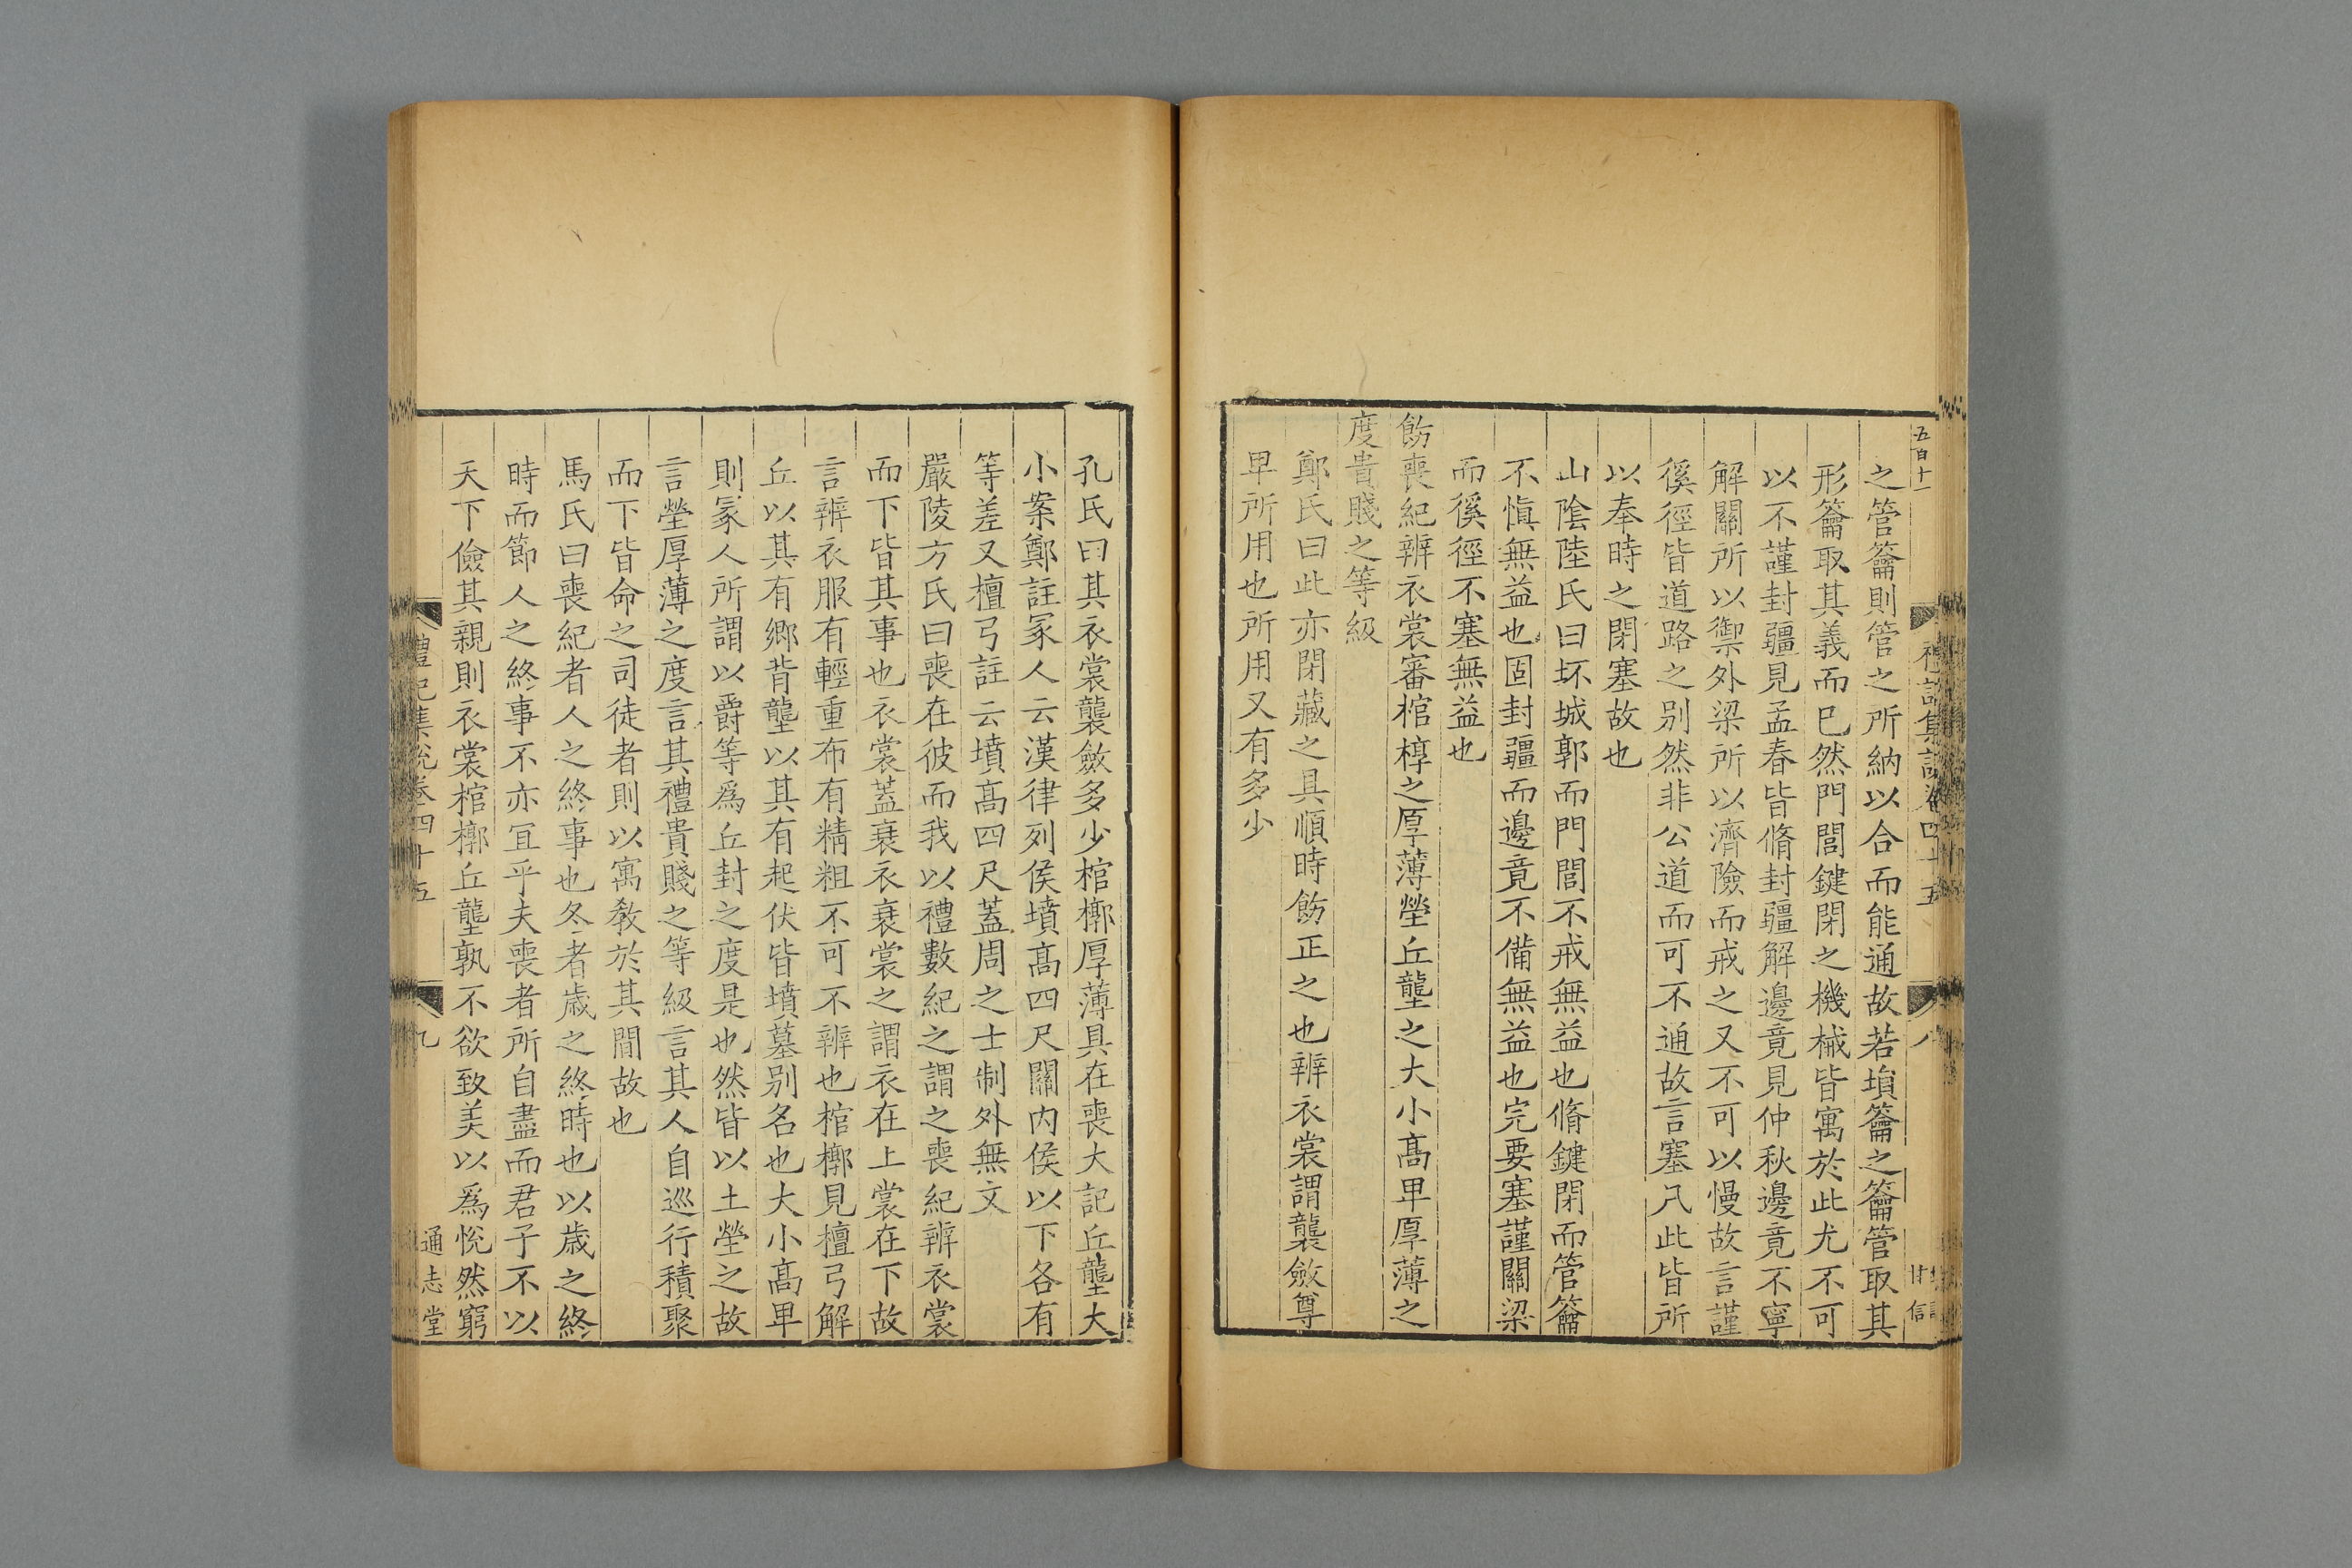 五百十一
之管籥則管之所納以合而能通故若塤籥之籥管取其
形籥取其義而已然門閭鍵閉之機械皆寓於此尤不可
以不謹封疆見孟春皆脩封疆解邊竟見仲秋邊竟不寧
解關所以禦外梁所以濟險而戒之又不可以慢故言謹
徯徑皆道路之别然非公道而可不通故言塞凡此皆所
以奉時之閉塞故也
山陰陸氏曰坏城郭而門閭不戒無益也脩鍵閉而管籥
不愼無益也固封疆而邊竟不備無益也完要塞謹關梁
而徯徑不塞無益也
飭喪紀辨衣裳審棺椁之厚薄塋丘壟之大小髙卑厚薄之
度貴賤之等級
鄭氏曰此亦閉藏之具順時飭正之也辨衣裳謂襲斂尊
卑所用也所用又有多少
孔氏曰其衣裳襲斂多少棺槨厚薄具在喪大記丘壟大
小案鄭註冢人云漢律列侯墳髙四尺關内侯以下各有
等差又檀弓註云墳髙四尺蓋周之士制外無文
嚴陵方氏曰喪在彼而我以禮數紀之謂之喪紀辨衣裳
而下皆其事也衣裳蓋衰衣衰裳之謂衣在上裳在下故
言辨衣服有輕重布有精粗不可不辨也棺槨見檀弓解
丘以其有鄉背壟以其有起伏皆墳墓别名也大小髙卑
則冢人所謂以爵等爲丘封之度是也然皆以土塋之故
言塋厚薄之度言其禮貴賤之等級言其人自巡行積聚
而下皆命之司徒者則以寓敎於其間故也
馬氏曰喪紀者人之終事也冬者歲之終時也以歲之終
時而節人之終事不亦宜乎夫喪者所自盡而君子不以
天下儉其親則衣裳棺槨丘壟孰不欲致美以爲恱然窮
禮記集説卷四十五
九
通志堂